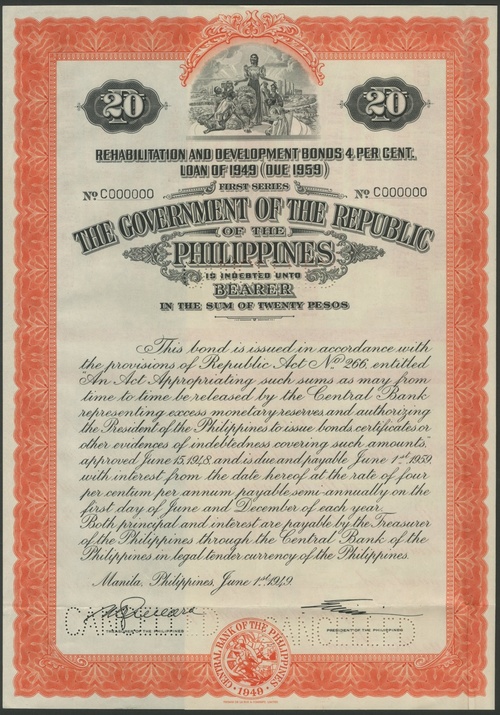 20 20
REHABILITATION AND DEVELOPMENT BONDS 4 PER CENT.
LOAN OF 1949 (DUE 1959)
FIRST SERIES
No C000000 No C000000
THE GOVERNMENT OF THE REPUBLIC
OF THE
PHILIPPINES
IS INDEBTED UNTO
BEARER
IN THE SUM OF TWENTY PESOS
This bond is issued in accordance with
the provisions of Republic Act No 266, entitled
"An Act Appropriating such sums as may from
time to time be released by the Central Bank
representing excess monetary reserves and authorizing
the President of the Philippines to issue bonds, certificates or
other evidences of indebtedness covering such amounts"
approved June 15, 1948, and is due and payable June 1st 1959,
with interest from the date hereof at the rate of four
per centum per annum payable semi-annually on the
first day of June and December of each year.
Both principal and interest are payable by the Treasurer
of the Philippines through the Central Bank of the
Philippines in legal tender currency of the Philippines.
Manila, Philippines, June 1st 1949.
CANCELLED CANCELLED
TREASURER OF THE PHILIPPINES PRESIDENT OF THE PHILIPPINES
CENTRAL BANK OF THE PHILIPPINES
1949